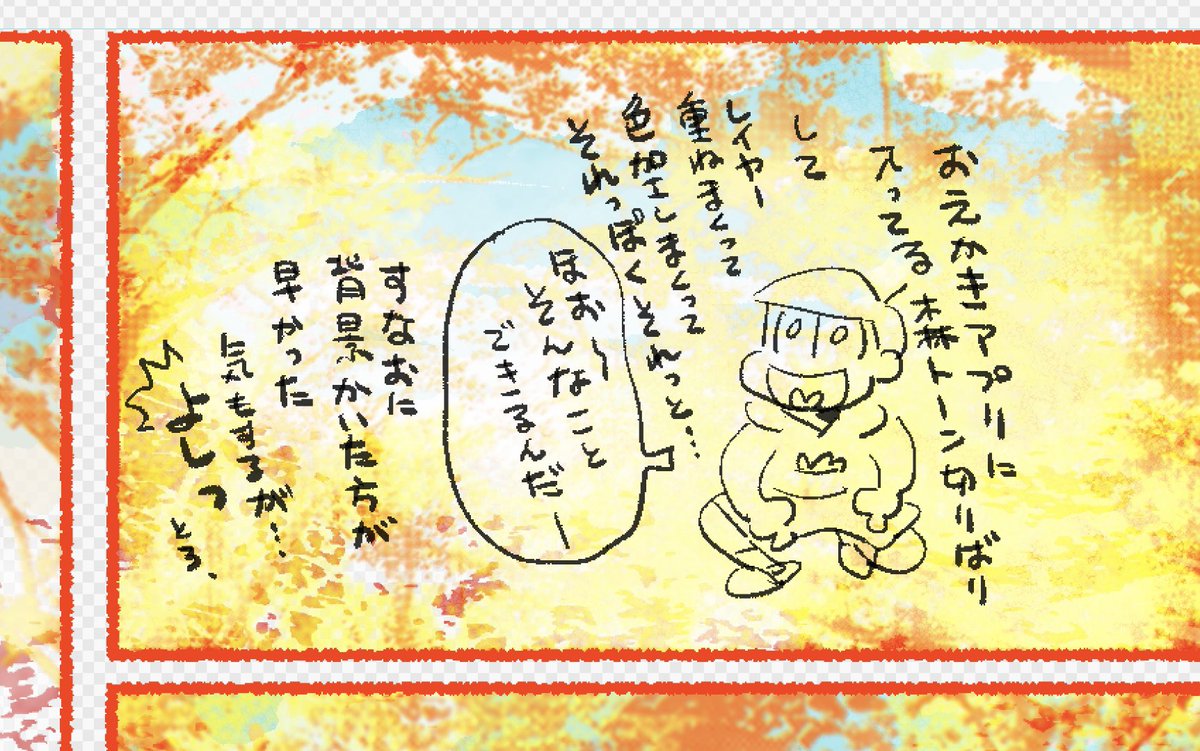 おえかきアプリに
入ってる森トーン切りばり
して
レイヤー
重ねまくって
色加工しまくって
それっぽくそれっと…
ほお〜
そんなこと
できるんだー
すなおに
背景かいた方が
早かった
気もするが…
よしっ
とろ、